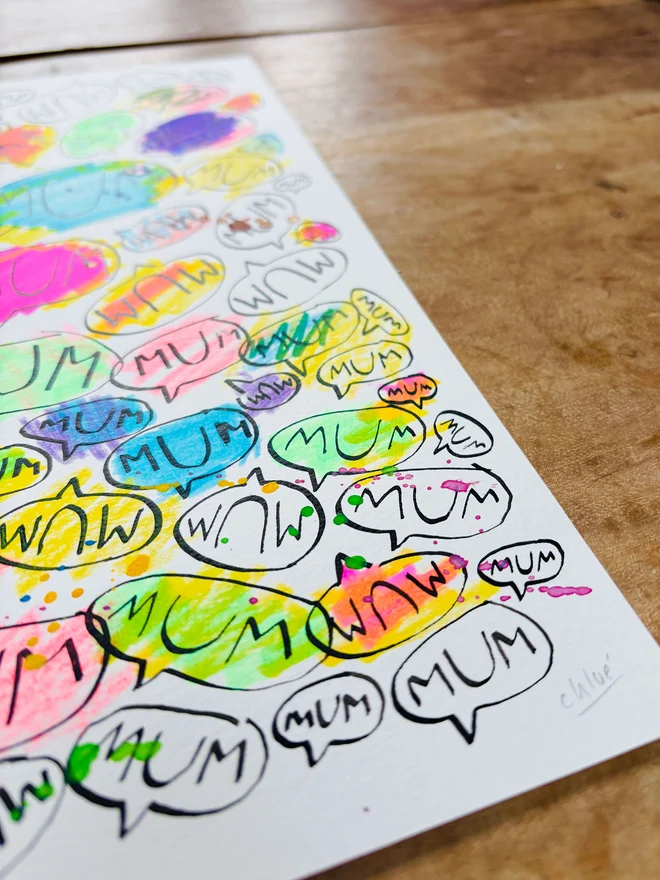 MUM
MUM
MUM
MUM
MUM
MUM
MUM
MUM
UM
MUM
MUM
MUM
MUM
MUM
MUM
MUM
MUM
UM
MUM
MUM
MUM
MUM
MUM
UM
MUM
MUM
MUM
chloé
MUM